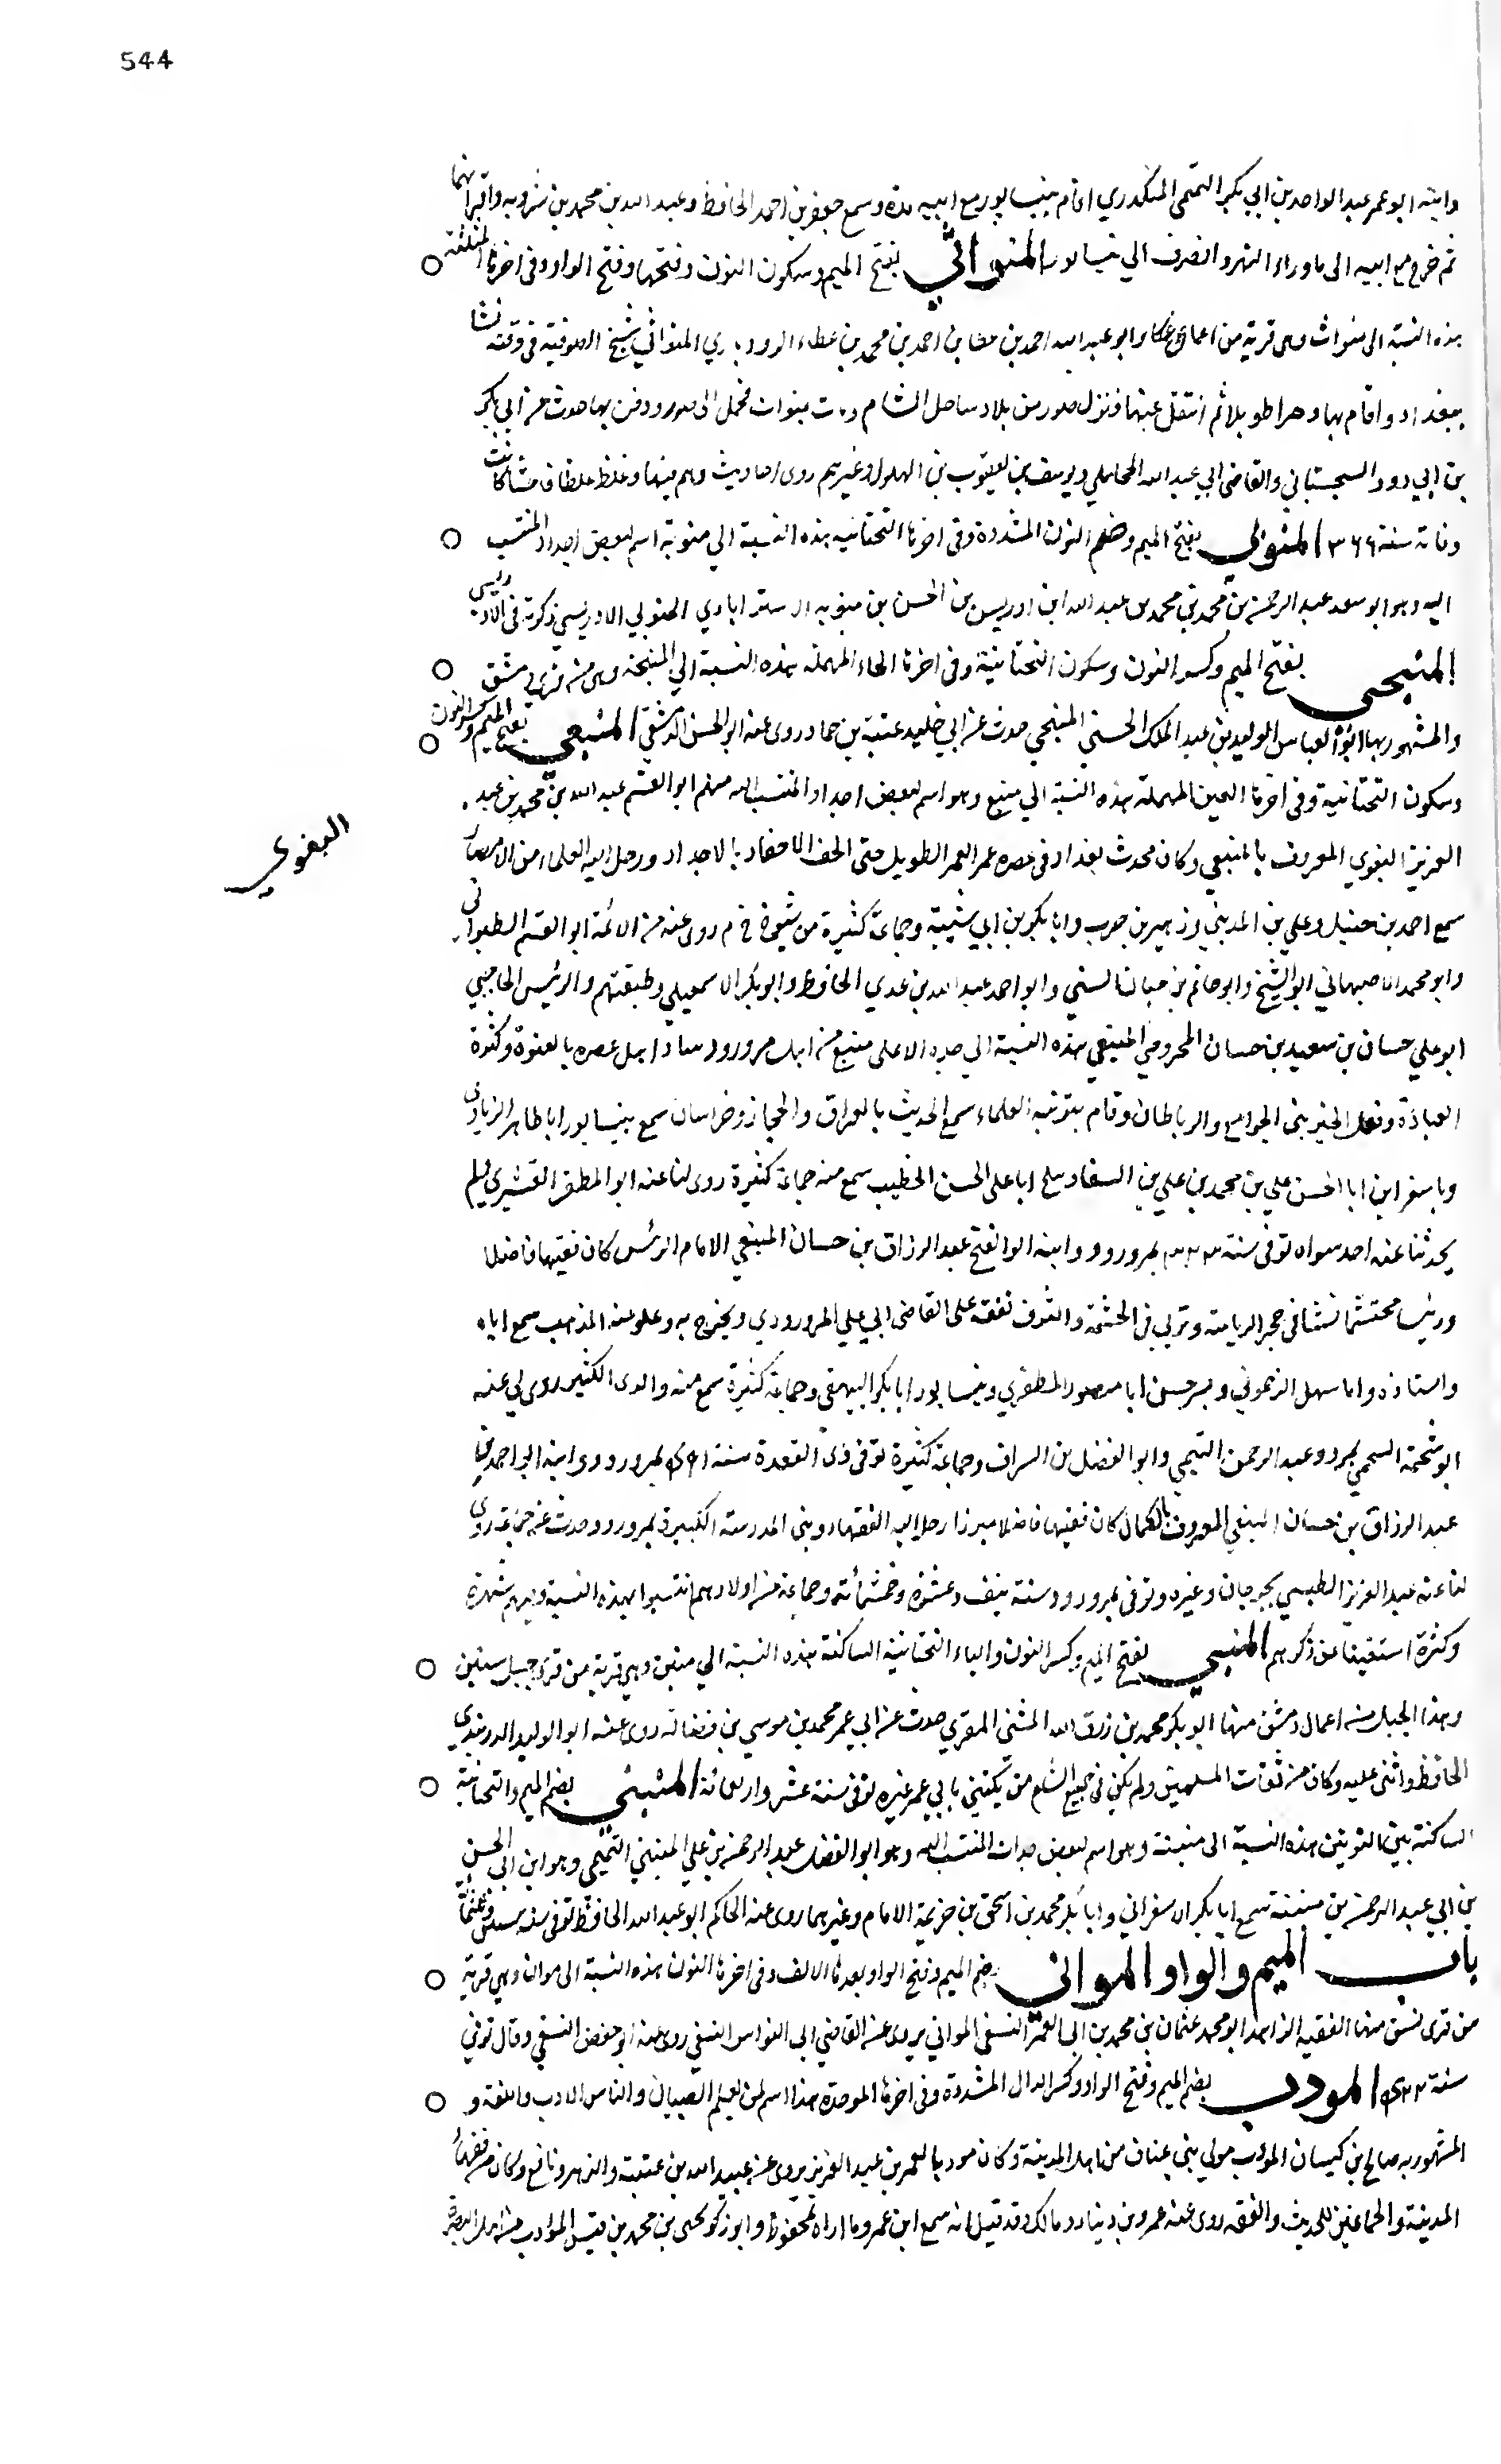 544
وابنه ابو عمر عبد الواحد بن ابي بكر التميمي المنكدري اقام بنيسابور مع ابيه مدة وسمع جعفر بن احمد الحافظ وعبد الله بن محمد بن شرويه واقرانهما
ثم خرج مع ابيه الى ماوراء النهر وانصرف الي نيسابور المنواثي بفتح الميم وسكون النون وفتحها وفتح الواو وفى اخرها المثلثة
هذه النسبة الى منواث وهى قرية من اعمال عكا وابو عبد الله احمد بن عطا بن احمد بن محمد بن عطاء الرودباري المنواثي شيخ الصوفية فى وقته نشا
ببغداد واقام بها دهرا طويلا ثم انتقل عنها فنزل صور من بلاد ساحل الشام ومات بمنوات فحمل الى صور ودفن بها حدث عن ابى بكر
بن ابي دود السجستاني والقاضى ابي عبد الله المحاملي ويوسف بن يعقوب بن البهلول وغيرهم روى احاديث وهم فيها وغلط غلطا فاحشا كانت
وفاته سنة ٣٦٩ المنوني بفتح الميم وضم النون المشددة وفى اخرها التحتانيه هذه النسبة الي منويه اسم لبعض اجداد المنتسب
اليه وهو ابو سعد عبد الرحمن بن محمد بن محمد بن عبد الله ابن ادريس بن الحسن بن منويه الاستراباوي المنوبي الادريسى ذكرته فى الادريسي
المنيحى بفتح الميم وكسر النون وسكون التحتانية وفى اخرها الحاء المهملة هذه النسبة الي المنيحة وهى من قرى دمشق
والمشهور بها ابو العباس الوليد بن عبد الملك الحسني المنيحي حدث عن ابي خليد عتبة بن حماد روى عنه ابو الحسن الدمشقي المنيعي بفتح الميم وكسر النون
وسكون التحتانية وفى اخرها العين المهملة هذه النسبة الي منيع وهو اسم لبعض اجداد المنتسب اليه منهم ابو القسم عبد الله بن محمد بن عبد
البغوي
العزيز البغوي المعروف بالمنيعي وكان محدث بغداد فى عصره عمر العمر الطويل حتى الحق الاحفاد بالاجداد ورحل اليه العلماء من الامصار
سمع احمد بن حنبل وعلي بن المديني وزهير بن حرب وابا بكر بن ابي شيبة وجماعة كثيرة من شيوخ خ م روى عنه من الائمة ابو القسم الطبراني
وابو محمد الاصبهاني ابو الشيخ وابو حاتم بن حبان البستي وابو احمد عبد الله بن عدي الحافظ وابو بكر الاسمعيلي وطبقتهم والرئيس الحاجبي
ابو علي حسان بن سعيد بن حسان المخزومي المنيعي هذه النسبة الي جده الاعلى منيع من اهل مرورود ساد اهل عصره بالفتوة وكثرة
العبادة وفعل الخير بنى الجوامع والرباطات وقام بتربية العلماء سمع الحديث بالعراق والحجاز وخراسان سمع بنيسابور ابا طاهر الزيادي
وباسفراين ابا الحسن علي بن محمد بن علي بن السقا وببلخ ابا على الحسن الخطيب سمع منه جماعة كثيرة روى لنا عنه ابو المظفر القشيري ولم
يحدثنا عنه احد سواه توفى سنة بمرورود وابنه ابو الفتح عبد الرزاق بن حسان المنيعي الامام الرئيس كان فقيها فاضلا
ورئيسا محتشما نشأ فى حجر الرياسة وتربي فى الحشمة والشرف تفقه على القاضى ابي علي المرورودي وتخرج به وعلق عنه المذهب سمع اباه
واستاذه وابا سهل الرحموني وبسرخس ابا منصور المظفري وبنيسابور ابا بكر البيهقى وجماعة كثيرة سمع منه والدى الكثير روى لي عنه
ابو شحمة السحمي بمرو وعبد الرحمن التيمي وابو الفضل بن السراف وجماعة كثيرة توفى فى ذى القعدة سنة بمرورود وابنه ابو احمد بن
عبد الرزاق بن حسان المنيعي المعروف بالكمال كان فقيها فاضلا مبرزا رحل اليه الفقهاء وبنى المدرسة الكبيرة بمرورود وحدث عنه جماعة روى
لنا عنه عبد العزيز الطبسي بجوجان وغيره وتوفى بمرورود سنة نيف وعشرة وخمسمائة وجماعة من اولادهم انتسبوا بهذه النسبة وفيهم شهرة
وكثرة استغنينا عن ذكرهم المنيني بفتح الميم وكسر النون والياء التحتانية الساكنة هذه النسبة الي منين وهي قرية من قرى جبل سنين
وهذا الجبل من اعمال دمشق منها ابو بكر محمد بن رزق الله المنيني المقري حدث عن ابي عمر محمد بن موسي بن فضالة روى عنه ابو الوليد الدربندي
الحافظ واثنى عليه وكان من ثقات المسلمين ولم يكن فى جميع الشام من يكتني بابي عمر غيره توفى سنة عشر واربعمائة المنيني بضم الميم والتحتانية
الساكنة بين النونين هذه النسبة الى منينة وهو اسم لبعض جدات المنتسب اليه وهو ابو الفضل عبد الرحمن بن علي المنيني التميمي وهو ابن ابى الحسن
بن ابي عبد الرحمن بن منينة سمع ابا بكر الاسفرايني وابا بكر محمد بن اسحق بن خزيمة الامام وغيرهما روى عنه الحاكم ابو عبد الله الحافظ توفى سنة
باب الميم والواو الموانى بضم الميم وفتح الواو بعدها الالف وفى اخرها النون هذه النسبة الى موان وهي قرية
من قرى نسف منها الفقيه الزاهد ابو محمد عثمان بن محمد بن ابى العمر النسفى الموانى يروى عن القاضي ابى الفوارس النسفي روى عنه ابو حفص النسفي وقال توفي
سنة المودب بضم الميم وفتح الواو وكسر الدال المشددة وفى اخرها الموحدة هذا اسم لمن يعلم الصبيان والناس الادب واللغة و
المشهور به صالح بن كيسان المودب مولي بنى عفان من اهل المدينة وكان مودبا لعمر بن عبد العزيز يروى عن عبيد الله بن عتبة والزهر ونافع وكان من فقهاء
المدينة والجماعين للحديث والفقه روى عنه عمرو بن دينار ومالك وقد قيل انه سمع ابن عمر وما اراه محفوظا وابو زكو يحيى بن محمد بن قيس المودب من اهل البصرة